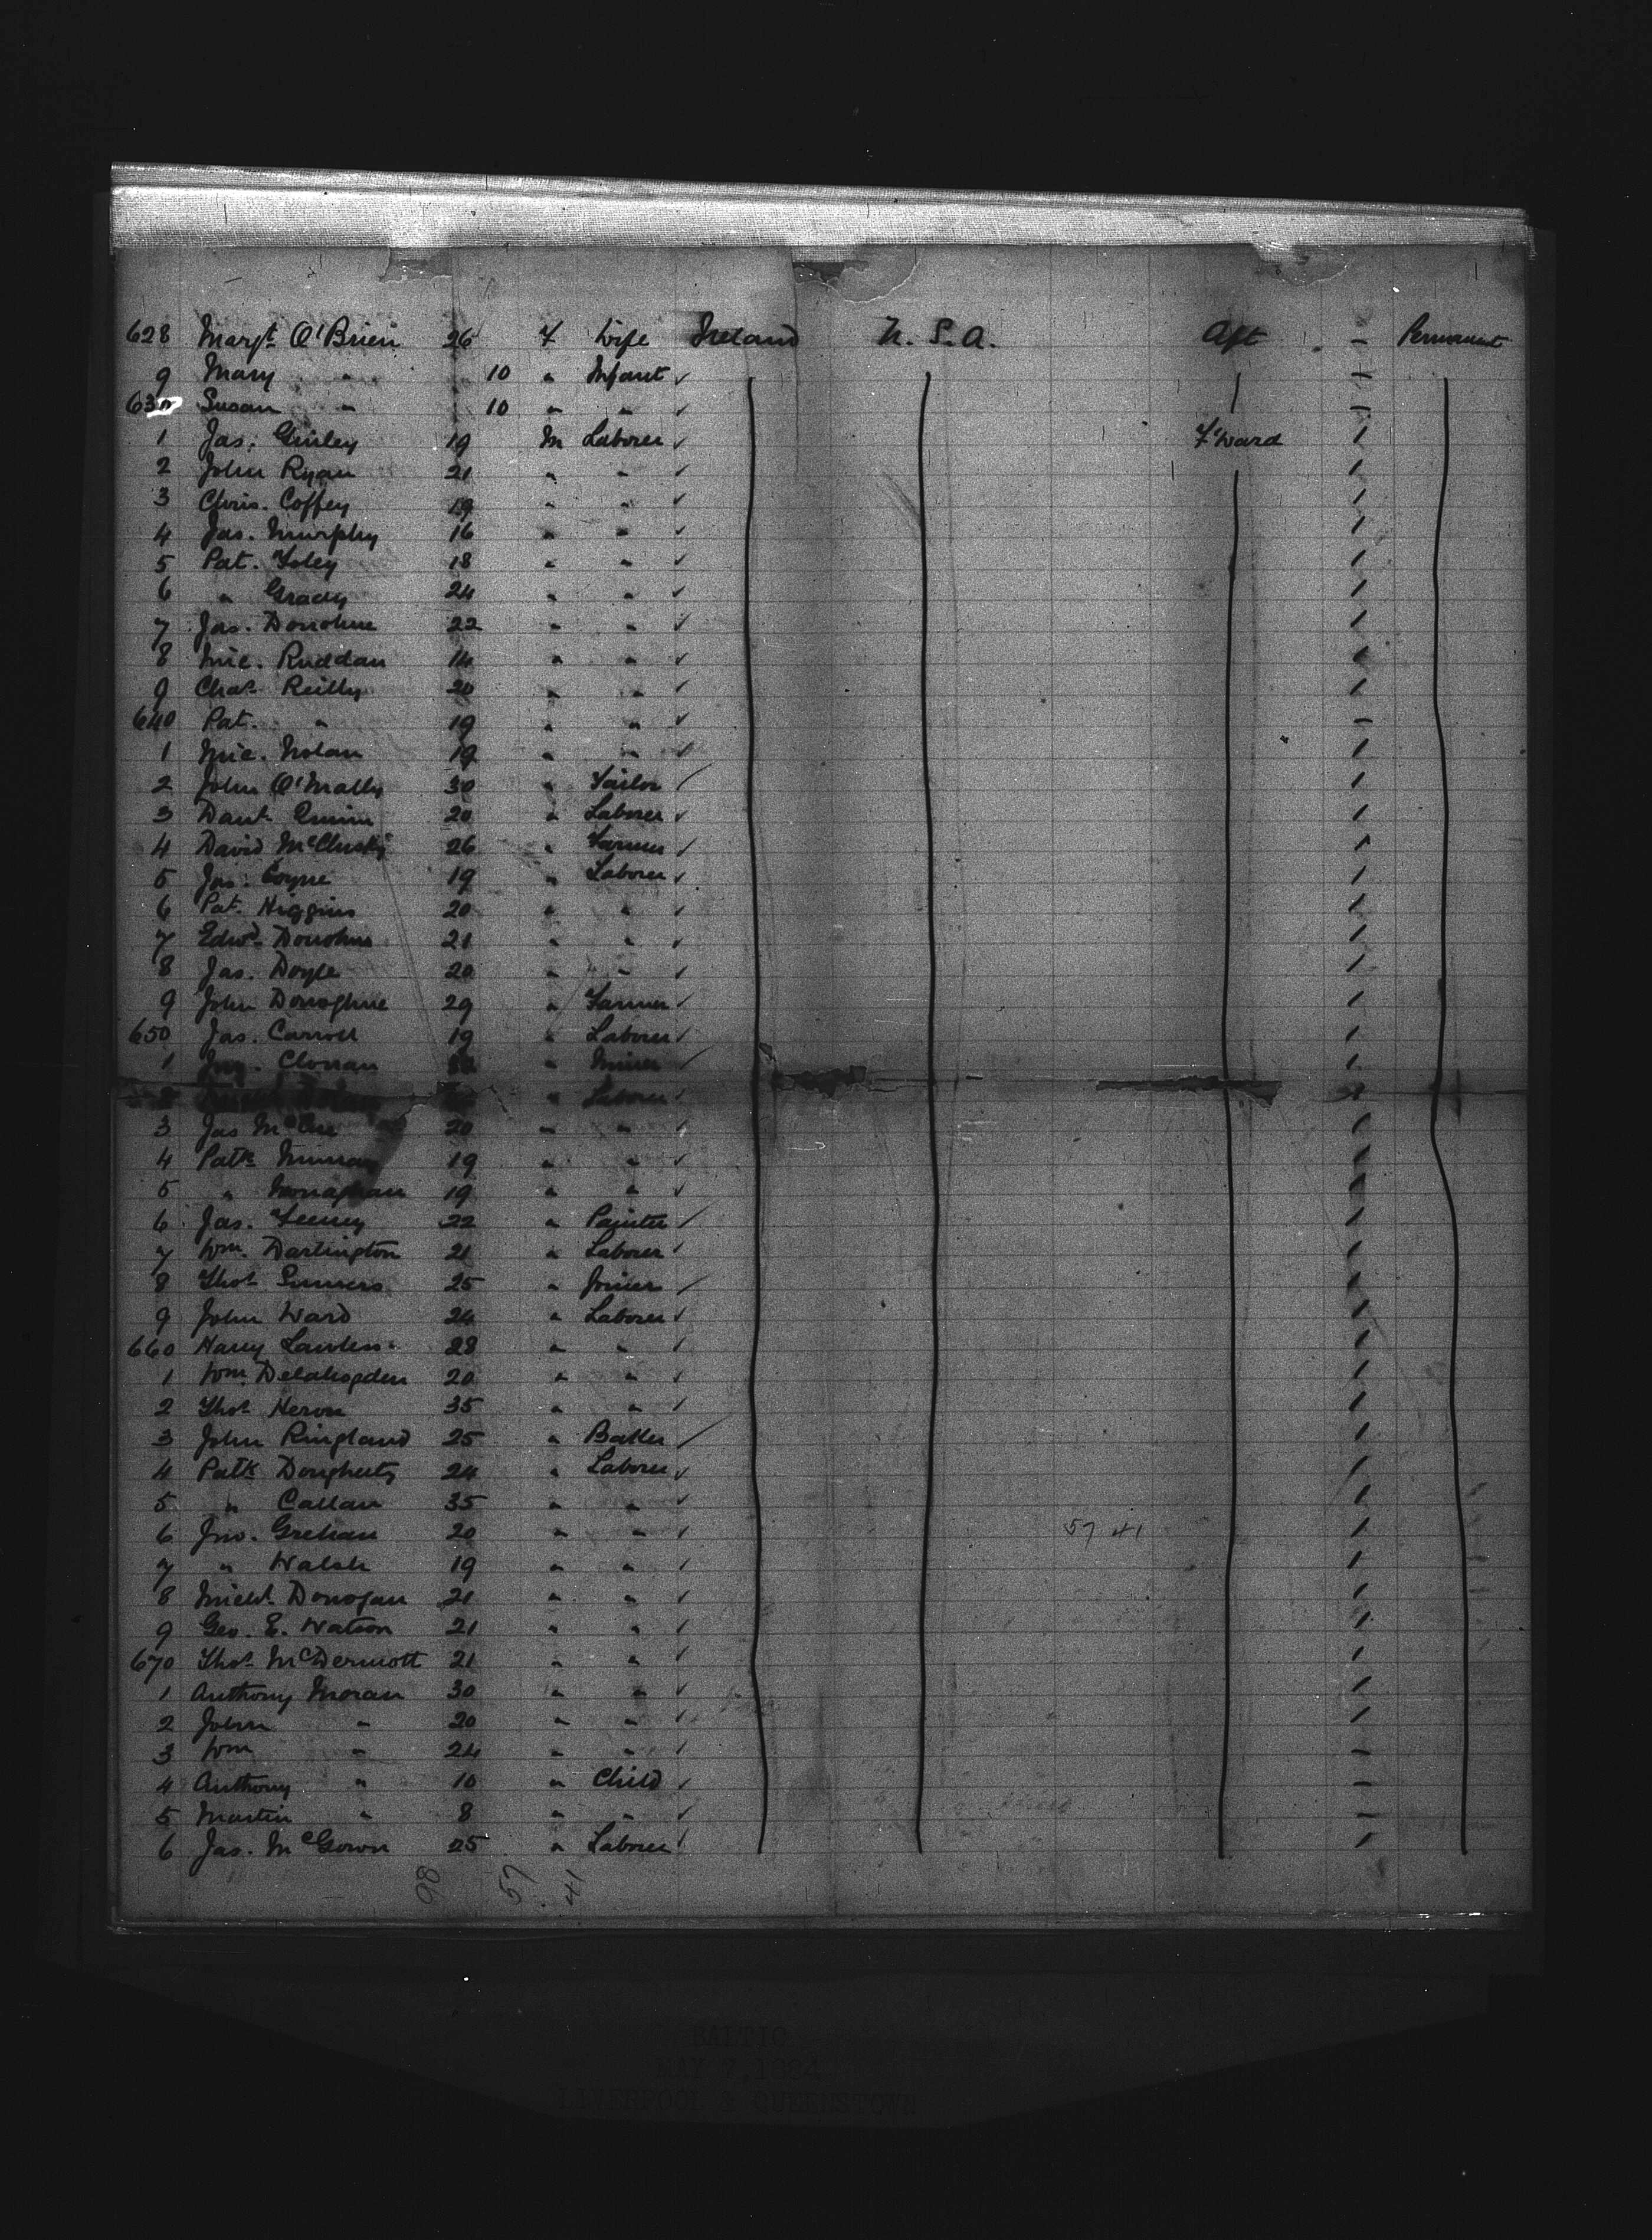 628 Margt O'Brien 26 F Wife Ireland U.S.A. Aft - Permanent
9 Mary " 10 " Infant ✓ -
630 Susan " 10 " " ✓ -
1 Jas. 19 M Laborer ✓ F'Ward /
2 John Ryan 21 " " ✓ /
3 Chris. Coffey 19 " " ✓ /
4 Jas. Murphy 16 " " ✓ /
5 Pat. Foley 18 " " ✓ /
6 " Grady 24 " " ✓ /
7 Jas. Donohue 22 " " ✓ /
8 Mic. Ruddan 14 " " ✓ /
9 Chas Reilly 20 " " ✓ /
640 Pat. " 19 " " ✓ -
1 Mic. Nolan 19 " " ✓ /
2 John O'Mally 30 " Tailor / /
3 Danl. Quinn 20 " Laborer ✓ /
4 David McClusky 26 " Farmer ✓ /
5 Jas. Coyne 19 " Laborer ✓ /
6 Pat. Higgins 20 " " ✓ /
7 Edwd Donohue 21 " " ✓ /
8 Jas. Doyle 20 " " ✓ /
9 John Donoghue 29 " Farmer ✓ /
650 Jas. Carroll 19 " Laborer ✓ /
1 Clonan " Miner / /
2 " Laborer ✓ /
3 Jas 20 " " ✓ /
4 Patk Murray 19 " " ✓ /
5 " Monaghan 19 " " ✓ /
6 Jas. Feeney 22 " Painter / /
7 Wm. Darlington 21 " Laborer ✓ /
8 Thos 25 " Joiner / /
9 John Ward 24 " Laborer ✓ /
660 Harry Lawless 28 " " ✓ /
1 Wm. 20 " " ✓ /
2 Thos Heron 35 " " ✓ /
3 John Ringland 25 " Baker / /
4 Patk Dougherty 24 " Laborer ✓ /
5 " Callan 35 " " ✓ /
6 Jno. Grehan 20 " " ✓ 57 41 /
7 " Walsh 19 " " ✓ /
8 Michl. Donogan 21 " " ✓ /
9 Geo. E. Watson 21 " " ✓ /
670 Thos McDermott 21 " " ✓ /
1 Anthony Moran 30 " " ✓ /
2 John " 20 " " ✓ /
3 Wm " 24 " " ✓ -
4 Anthony " 10 " Child ✓ -
5 Martin " 8 " " ✓ -
6 Jas. McGown 25 " Laborer ✓ /
98 57 41
BALTIC
MAY 7, 1884
LIVERPOOL & QUEENSTOWN